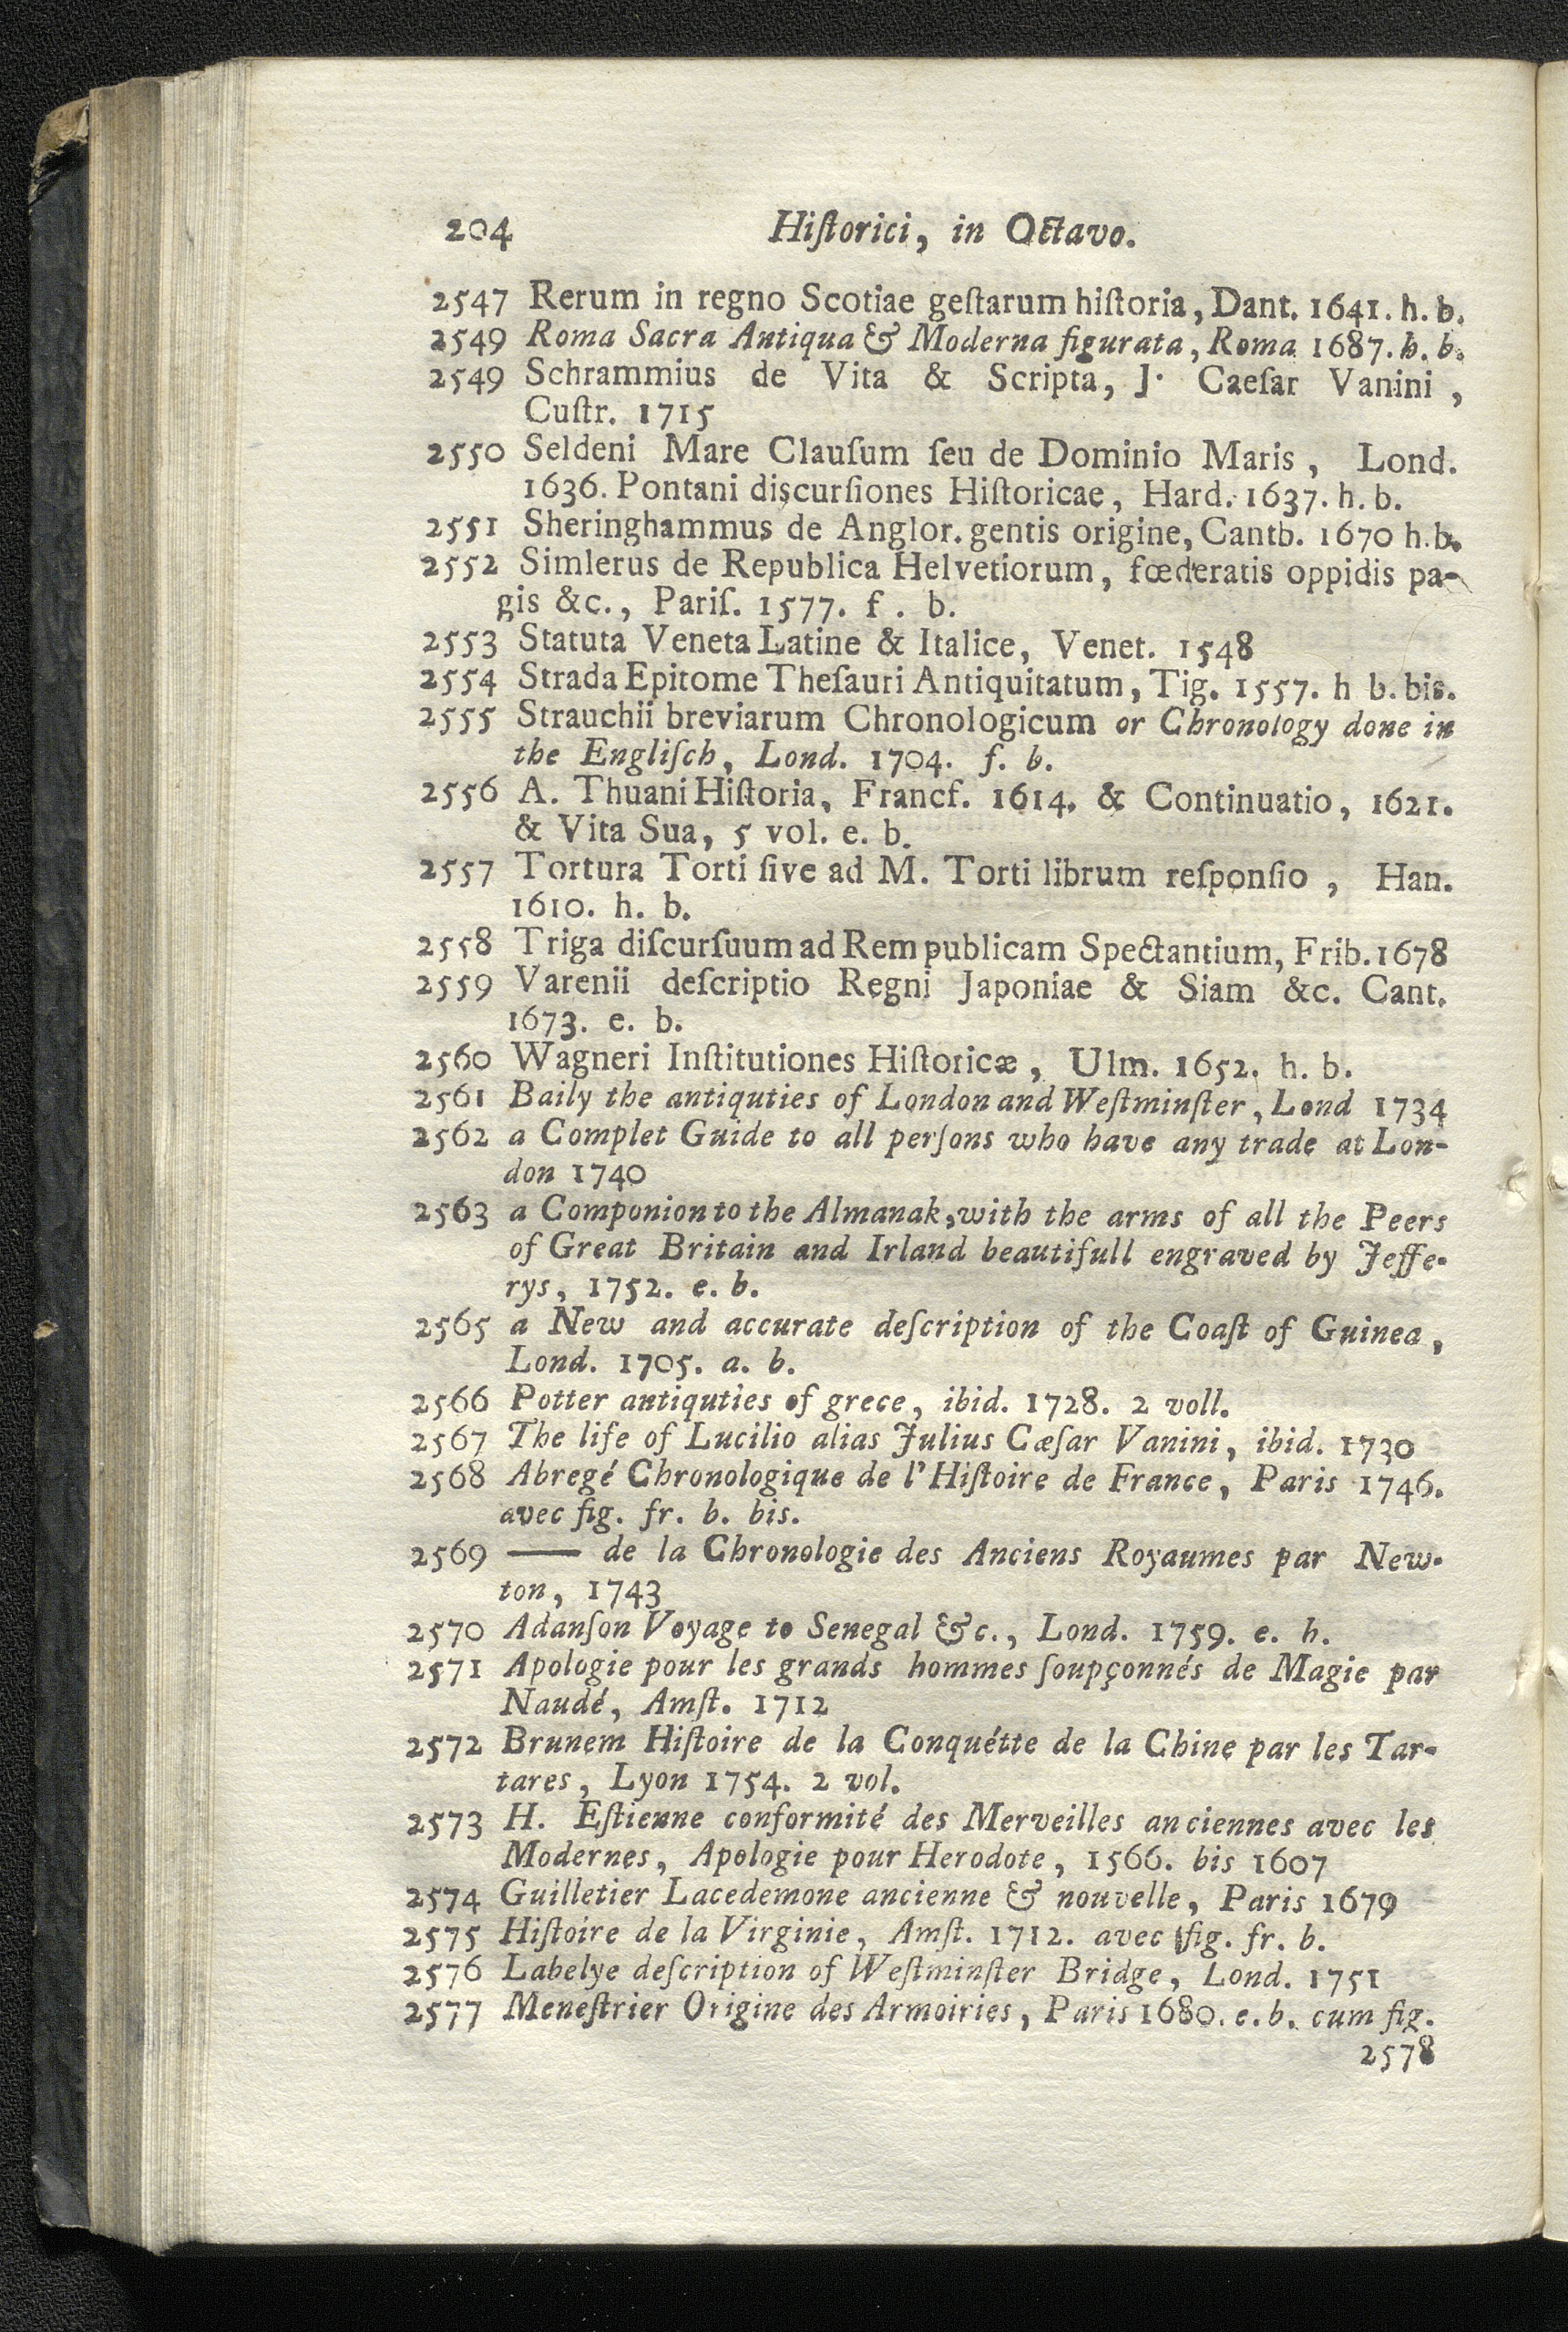 204 Hiſtorici, in Octavo.
2547 Rerum in regno Scotiae geſtarum hiſtoria, Dant. 1641. h. b.
2549 Roma Sacra Antiqua & Moderna figurata, Roma 1687. h. b.
2549 Schrammius de Vita & Scripta, J. Caeſar Vanini,
Cuſtr. 1715
2550 Seldeni Mare Clauſum ſeu de Dominio Maris, Lond.
1636. Pontani discurſiones Hiſtoricae, Hard. 1637. h. b.
2551 Sheringhammus de Anglor. gentis origine, Cantb. 1670 h. b.
2552 Simlerus de Republica Helvetiorum, fœderatis oppidis pa-
gis &c., Pariſ. 1577. f. b.
2553 Statuta Veneta Latine & Italice, Venet. 1548
2554 Strada Epitome Theſauri Antiquitatum, Tig. 1557. h b. bis.
2555 Strauchii breviarum Chronologicum or Chronology done in
the Engliſch, Lond. 1704. f. b.
2556 A. Thuani Hiſtoria, Francf. 1614. & Continuatio, 1621.
& Vita Sua, 5 vol. e. b.
2557 Tortura Torti ſive ad M. Torti librum reſponſio, Han.
1610. h. b.
2558 Triga diſcurſuum ad Rem publicam Spectantium, Frib. 1678
2559 Varenii deſcriptio Regni Japoniae & Siam &c. Cant.
1673. e. b.
2560 Wagneri Inſtitutiones Hiſtoricæ, Ulm. 1652. h. b.
2561 Baily the antiquties of London and Weſtminſter, Lond 1734
2562 a Complet Guide to all perſons who have any trade at Lon-
don 1740
2563 a Componion to the Almanak, with the arms of all the Peers
of Great Britain and Irland beautifull engraved by Jeffe-
rys, 1752. e. b.
2565 a New and accurate deſcription of the Coaſt of Guinea,
Lond. 1705. a. b.
2566 Potter antiquties of grece, ibid. 1728. 2 voll.
2567 The life of Lucilio alias Julius Cæſar Vanini, ibid. 1730
2568 Abregé Chronologique de l'Hiſtoire de France, Paris 1746.
avec fig. fr. b. bis.
2569 —— de la Chronologie des Anciens Royaumes par New-
ton, 1743
2570 Adanſon Voyage to Senegal &c., Lond. 1759. e. h.
2571 Apologie pour les grands hommes ſoupçonnés de Magie par
Naudé, Amſt. 1712
2572 Brunem Hiſtoire de la Conquétte de la Chine par les Tar-
tares, Lyon 1754. 2 vol.
2573 H. Eſtienne conformité des Merveilles anciennes avec les
Modernes, Apologie pour Herodote, 1566. bis 1607
2574 Guilletier Lacedemone ancienne & nouvelle, Paris 1679
2575 Hiſtoire de la Virginie, Amſt. 1712. avec fig. fr. b.
2576 Labelye deſcription of Weſtminſter Bridge, Lond. 1751
2577 Meneſtrier Origine des Armoiries, Paris 1680. e. b. cum fig.
2578